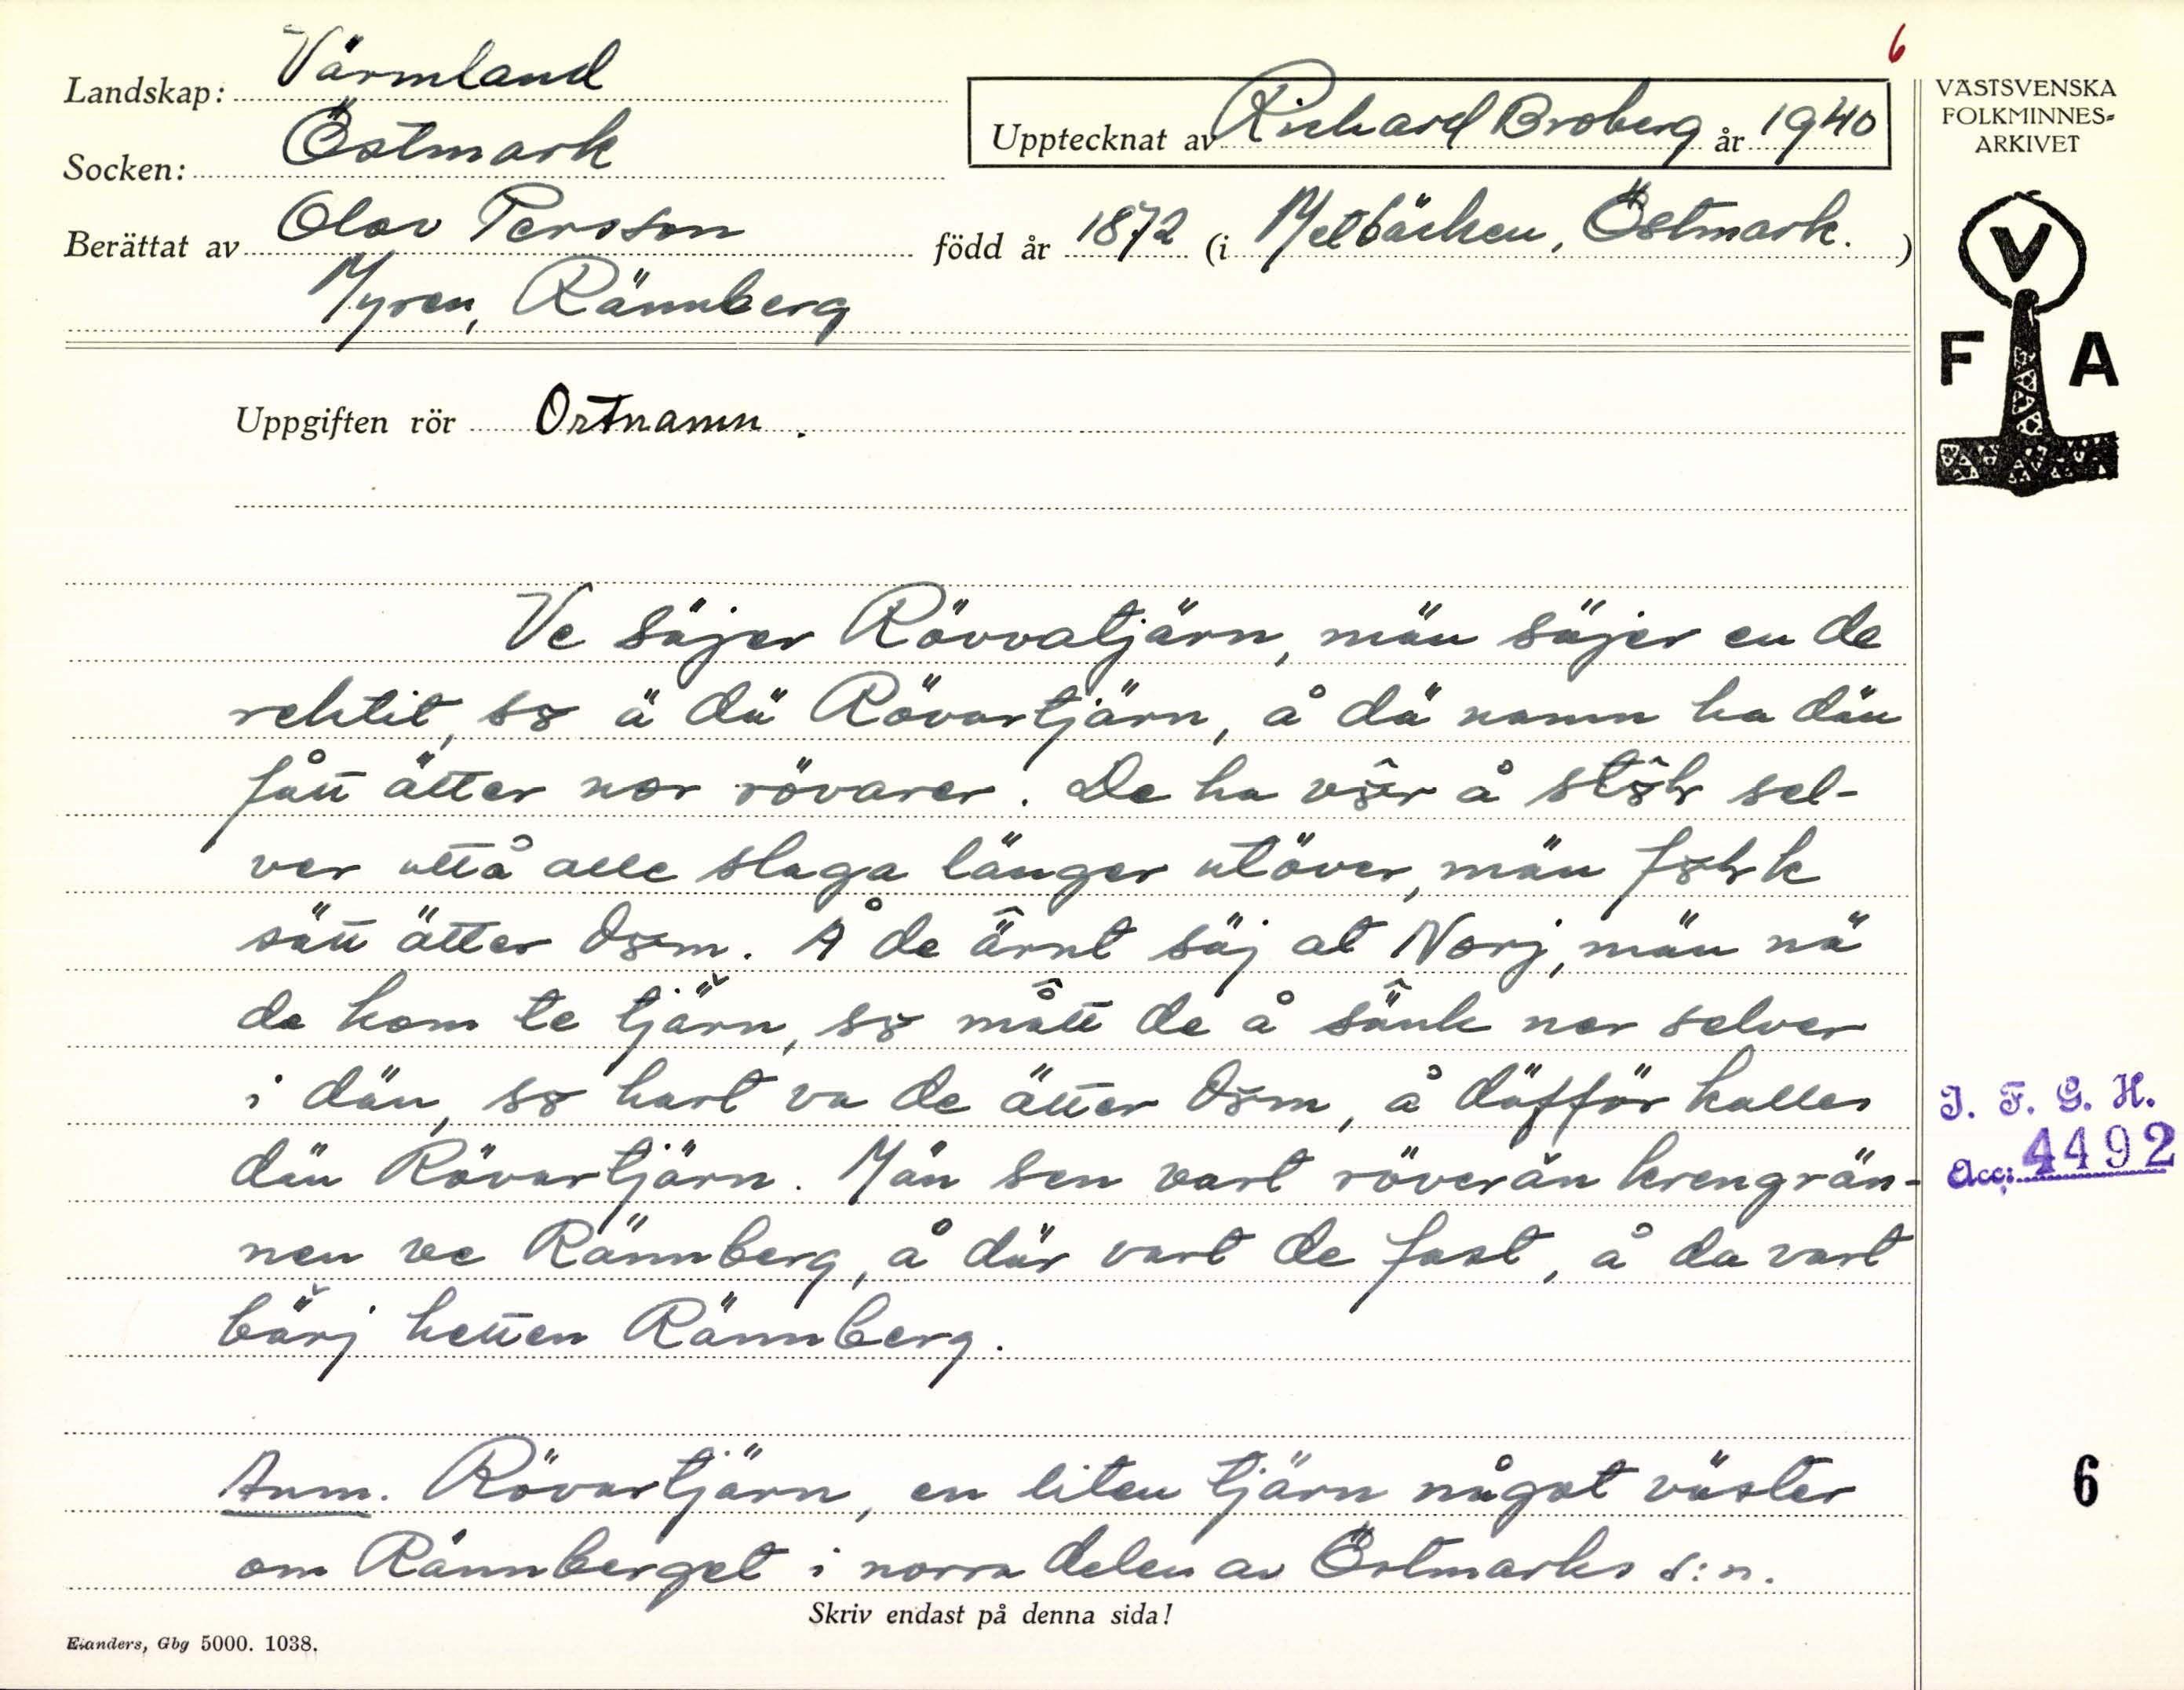 6
Landskap: Värmland
Upptecknat av Richard Broberg år 1940
Socken: Östmark
Berättat av Olov Persson född år 1872 (i Metbäcken, Östmark.)
Myren, Rännberg
VÄSTSVENSKA
FOLKMINNES=
ARKIVET
V
F A
Uppgiften rör Ortnamn.
Ve säjer Rövvatjärn, män säjer en de
rektit, so ä dä Rövartjärn, å dä namn ha dän
fått ätter nor rövarer. De ha vör å stöh sel-
ver uttå alle slaga länger utöver, män folk
sätt ätter dom. Å de ärnt säj at Norj, män nä
de kom te tjärn, so mått de å sänk ner selver
i dän, so hart va de ätter dom, å däfför kalles
dän Rövartjärn. Män sen vart röverän krengrän-
nen ve Rännberg, å där vart de fast, å da vart
bärj hetten Rännberg.
J. F. G. H.
Acc: 4492
Anm. Rövartjärn, en liten tjärn något väster
om Rännberget i norra delen av Östmarks s:n.
6
Skriv endast på denna sida!
Elanders, Gbg 5000. 1038.